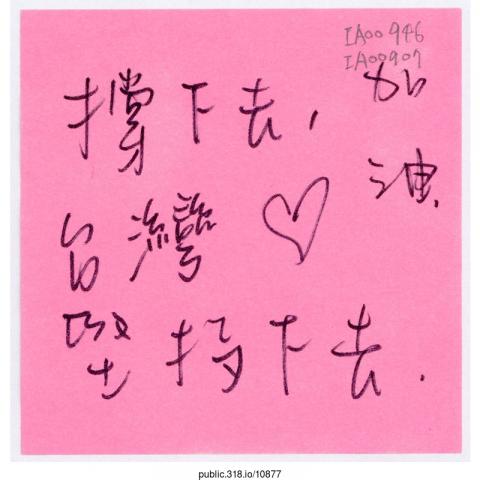 IA00946
IA00907
撐下去，
加油
台灣♡
堅持下去.
public.318.io/10877